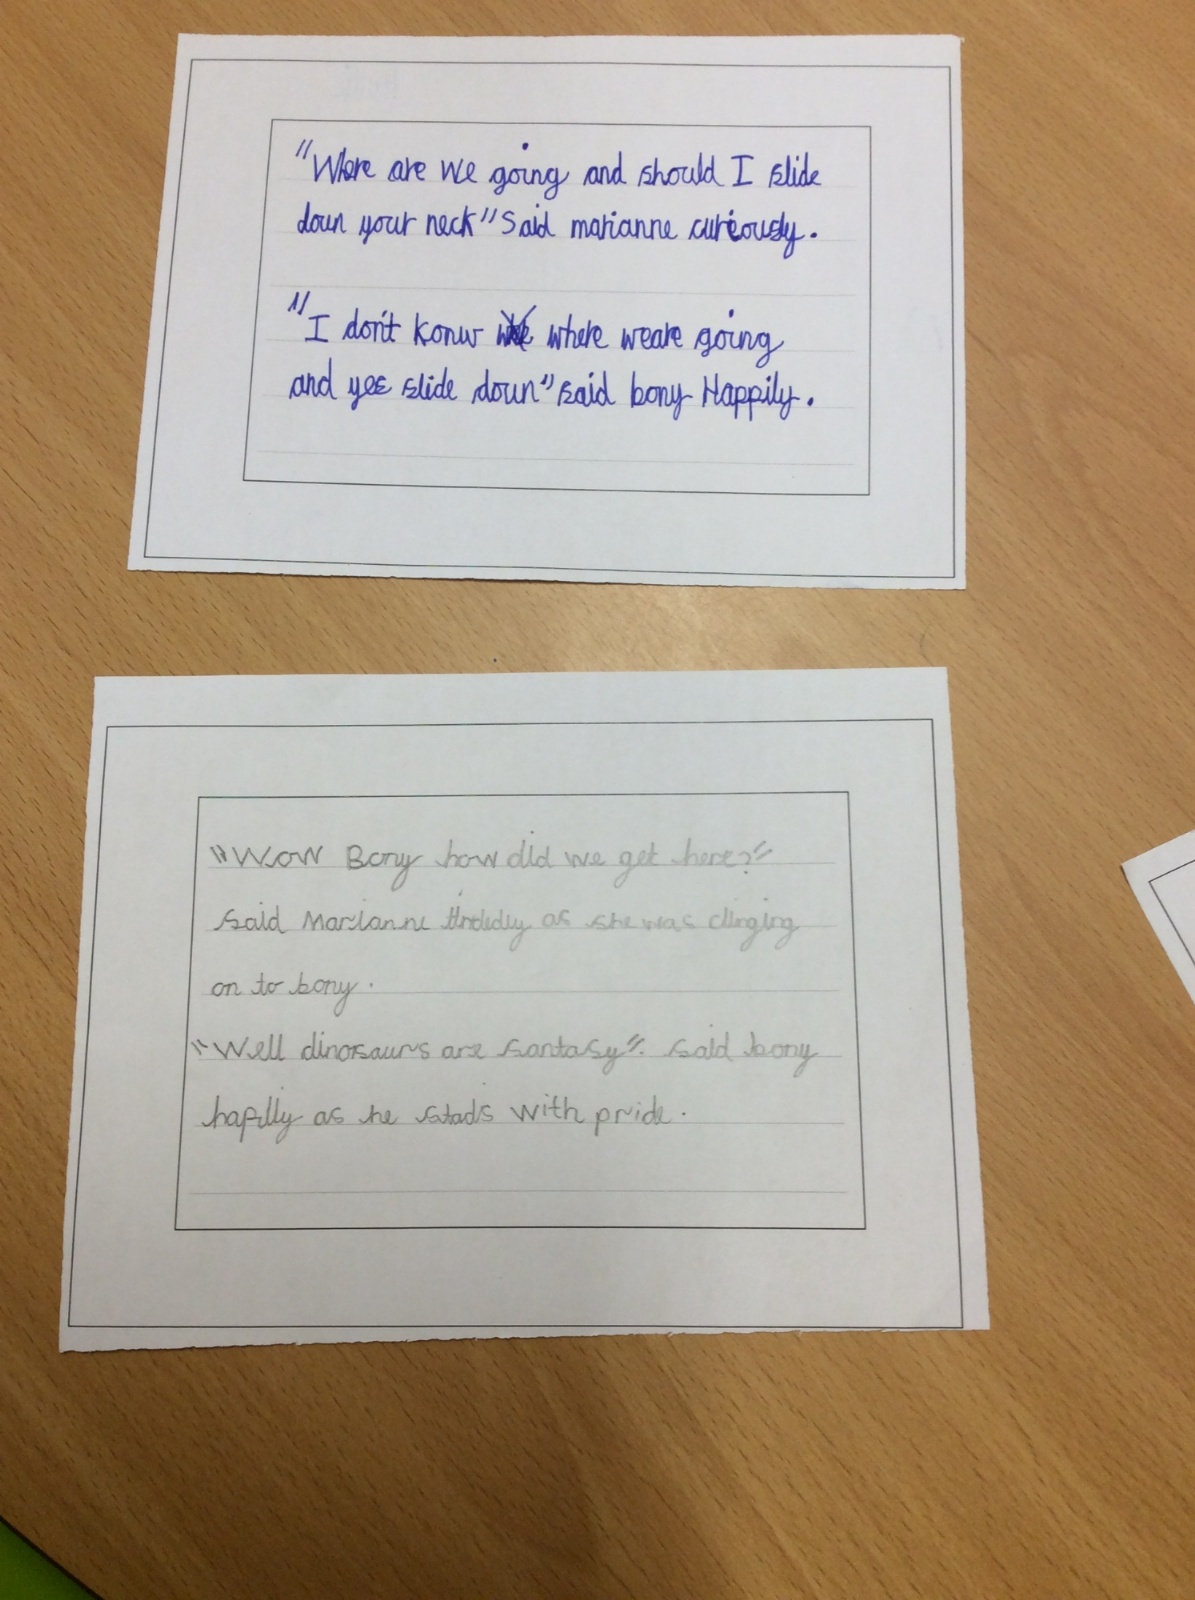 "Where are we going and should I slide
doun your neck" Said marianne curiously.
"I don't konw where weare going
and yes slide doun" said bony Happily.
"Wow Bony how did we get here?"
said Marianne as she was clinging
on to bony.
"Well dinosaurs are santasy". said bony
hapilly as he stads with pride.